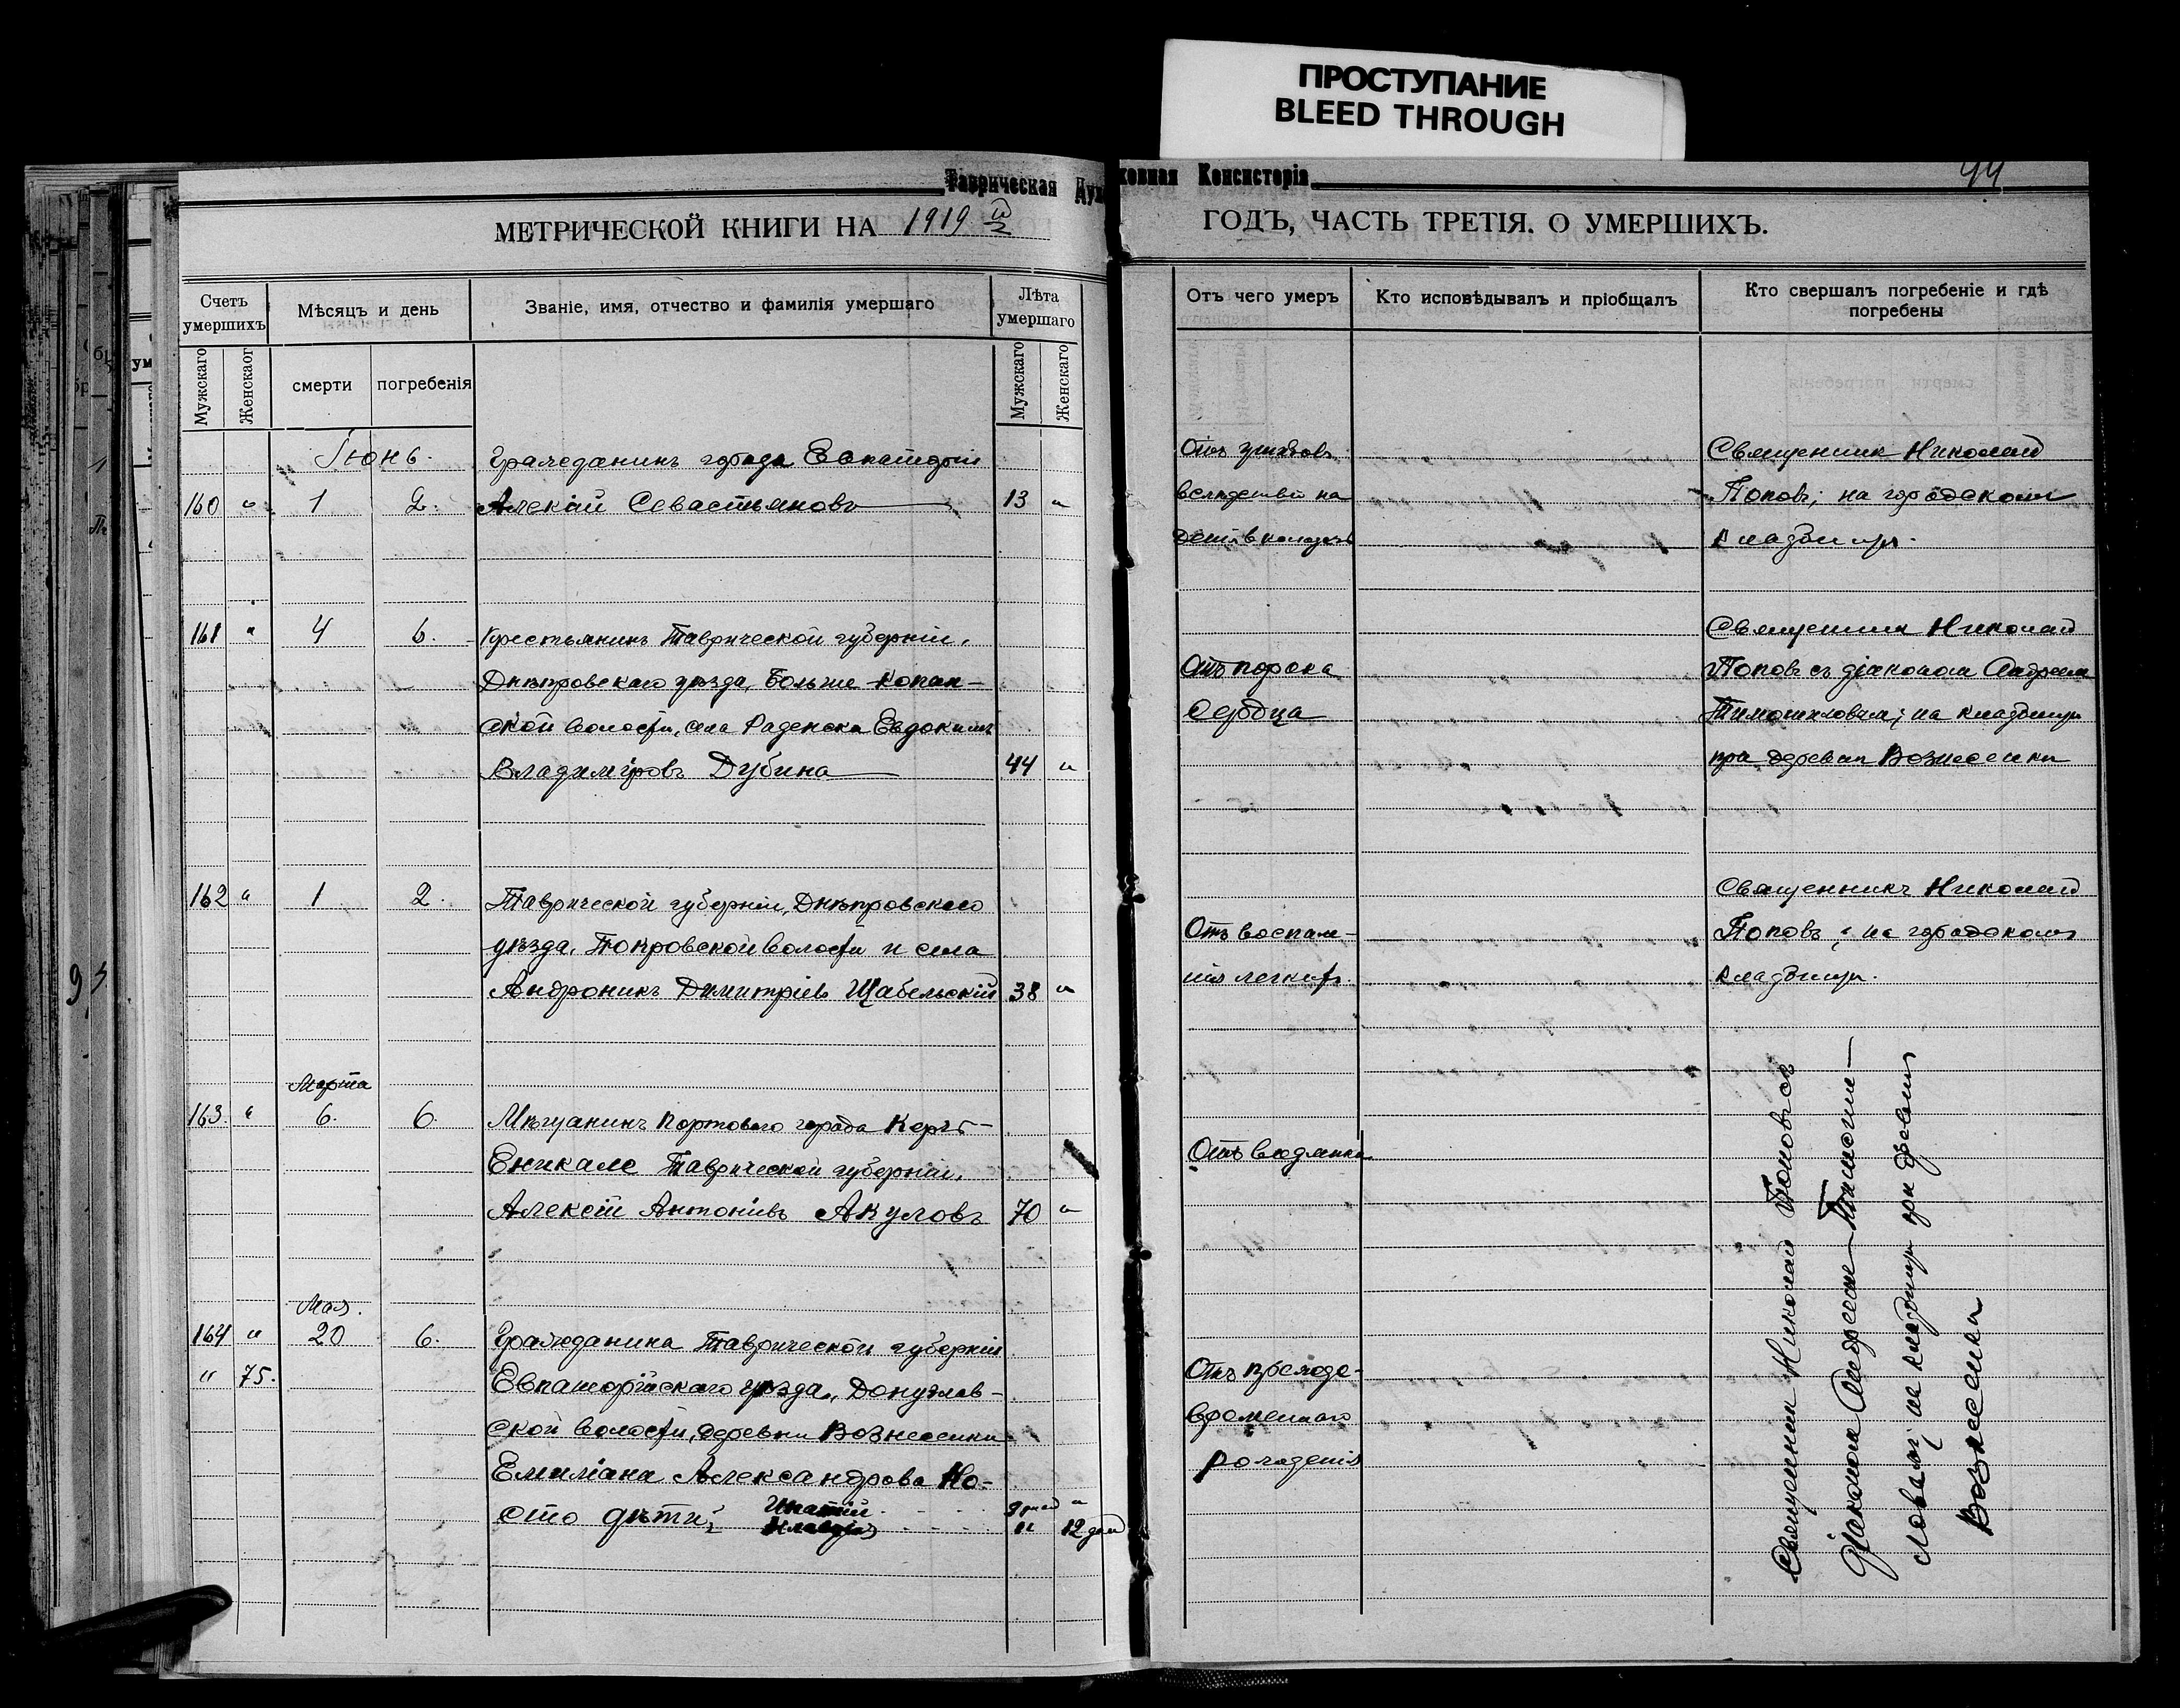 ПРОСТУПАНИЕ
BLEED THROUGH
Таврическая Духовная Консисторія
44
МЕТРИЧЕСКОЙ КНИГИ НА 1919 й
ГОДЪ, ЧАСТЬ ТРЕТІЯ. О УМЕРШИХЪ.
Счетъ умершихъ
Мѣсяцъ и день
Званіе, имя, отчество и фамилія умершаго
Лѣта умершаго
Отъ чего умеръ
Кто исповѣдывалъ и пріобщалъ
Кто свершалъ погребеніе и гдѣ погребены
Мужскаго
Женскаог
смерти
погребенія
Мужскаго
Женскаго
Іюнь.
Гражданинъ города Евпаторіи
160 " 1 2. Алексій Севастьяновъ 13 "
Отъ ушибовъ
вслѣдствіи па
денія в колодезь
Священник Николай
Поповъ; на городском
кладбищѣ.
161 " 4 6. Крестьянинъ Таврической губерніи,
Днѣпровскаго уѣзда, Больше-Копан-
ской волости, села Раденска Евдокимъ
Владиміровъ Дубина 44 "
Отъ порока
Сердца
Священник Николай
Поповъ съ діакономъ Андреем
Тимошиловым; на кладбищѣ
при деревни Вознесенки
162 " 1 2. Таврической губерніи, Днѣпровскаго
уѣзда, Покровской волости и села
Андроникъ Димитріевъ Щабельскій 38 "
Отъ воспале-
нія легкихъ.
Священникъ Николай
Поповъ; на городскомъ
кладбищѣ.
Марта
163. " 6. 6. Мѣщанинъ портоваго города Керчь-
Еникале Таврической губерніи,
Алексій Антоніевъ Акуловъ 70 "
Отъ водянки
Мая.
164 " 20 6. Гражданина Таврической губерніи
" 75. Евпаторійскаго уѣзда, Донузлав-
ской волости, деревни Вознесенки
Емиліана Александрова Но-
сто дѣти: Игнатій 9 дней "
Клавдія " 12 дней
Отъ прежде-
временнаго
рожденія
Священник Николай Поповъ съ
діакономъ Андреемъ Тимоши-
ловым; на кладбищѣ при деревни
Вознесенки